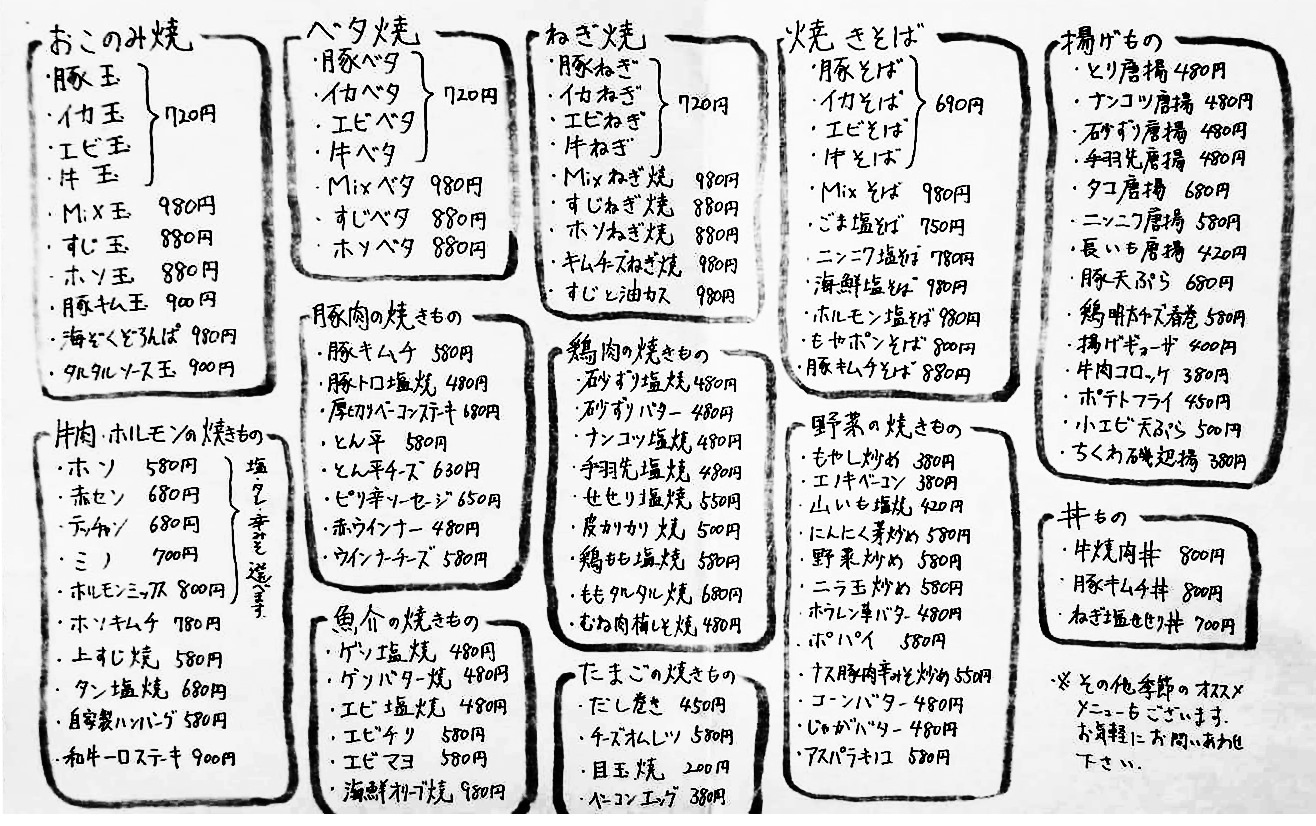 おこのみ焼
・豚玉
・イカ玉
・エビ玉
・牛玉
720円
・Mix玉 980円
・すじ玉 880円
・ホソ玉 880円
・豚キム玉 900円
・海ぞくぞろんぱ 980円
・タルタルソース玉 900円
ベタ焼
・豚ベタ
・イカベタ
・エビベタ
・牛ベタ
720円
・Mixベタ 980円
・すじベタ 880円
・ホソベタ 880円
ねぎ焼
・豚ねぎ
・イカねぎ
・エビねぎ
・牛ねぎ
720円
・Mixねぎ焼 980円
・すじねぎ焼 880円
・ホソねぎ焼 880円
・キムチーズねぎ焼 980円
・すじと油カス 980円
焼きそば
・豚そば
・イカそば
・エビそば
・牛そば
690円
・Mixそば 980円
・ごま塩そば 750円
・ニンニク塩そば 780円
・海鮮塩そば 980円
・ホルモン塩そば 980円
・もやポンそば 800円
・豚キムチそば 880円
揚げもの
・とり唐揚 480円
・ナンコツ唐揚 480円
・砂ずり唐揚 480円
・手羽先唐揚 480円
・タコ唐揚 680円
・ニンニク唐揚 580円
・長いも唐揚 420円
・豚天ぷら 680円
・鶏明太チーズ春巻 580円
・揚げギョーザ 400円
・牛肉コロッケ 380円
・ポテトフライ 450円
・小エビ天ぷら 500円
・ちくわ磯辺揚 380円
牛肉・ホルモンの焼きもの
・ホソ 580円
・赤セン 680円
・テッチャン 680円
・ミノ 700円
・ホルモンミックス 800円
塩・タレ・辛みそ 選べます。
・ホソキムチ 780円
・上すじ焼 580円
・タン塩焼 680円
・自家製ハンバーグ 580円
・和牛一口ステーキ 900円
豚肉の焼きもの
・豚キムチ 580円
・豚トロ塩焼 480円
・厚切りベーコンステーキ 680円
・とん平 580円
・とん平チーズ 630円
・ピリ辛ソーセージ 650円
・赤ウインナー 480円
・ウインナーチーズ 580円
魚介の焼きもの
・ゲソ塩焼 480円
・ゲソバター焼 480円
・エビ塩焼 480円
・エビチリ 580円
・エビマヨ 580円
・海鮮オリーブ焼 980円
鶏肉の焼きもの
・砂ずり塩焼 480円
・砂ずりバター 480円
・ナンコツ塩焼 480円
・手羽先塩焼 480円
・せせり塩焼 550円
・皮カリカリ焼 500円
・鶏もも塩焼 580円
・ももタルタル焼 680円
・むね肉梅しそ焼 480円
たまごの焼きもの
・だし巻き 450円
・チーズオムレツ 580円
・目玉焼 200円
・ベーコンエッグ 380円
野菜の焼きもの
・もやし炒め 380円
・エノキベーコン 380円
・山いも塩焼 420円
・にんにく芽炒め 580円
・野菜炒め 580円
・ニラ玉炒め 580円
・ホウレン草バター 480円
・ポパイ 580円
・ナス豚肉辛みそ炒め 550円
・コーンバター 480円
・じゃがバター 480円
・アスパラキノコ 580円
丼もの
・牛焼肉丼 800円
・豚キムチ丼 800円
・ねぎ塩せせり丼 700円
※その他季節のオススメ
メニューもございます。
お気軽にお問いあわせ
下さい。